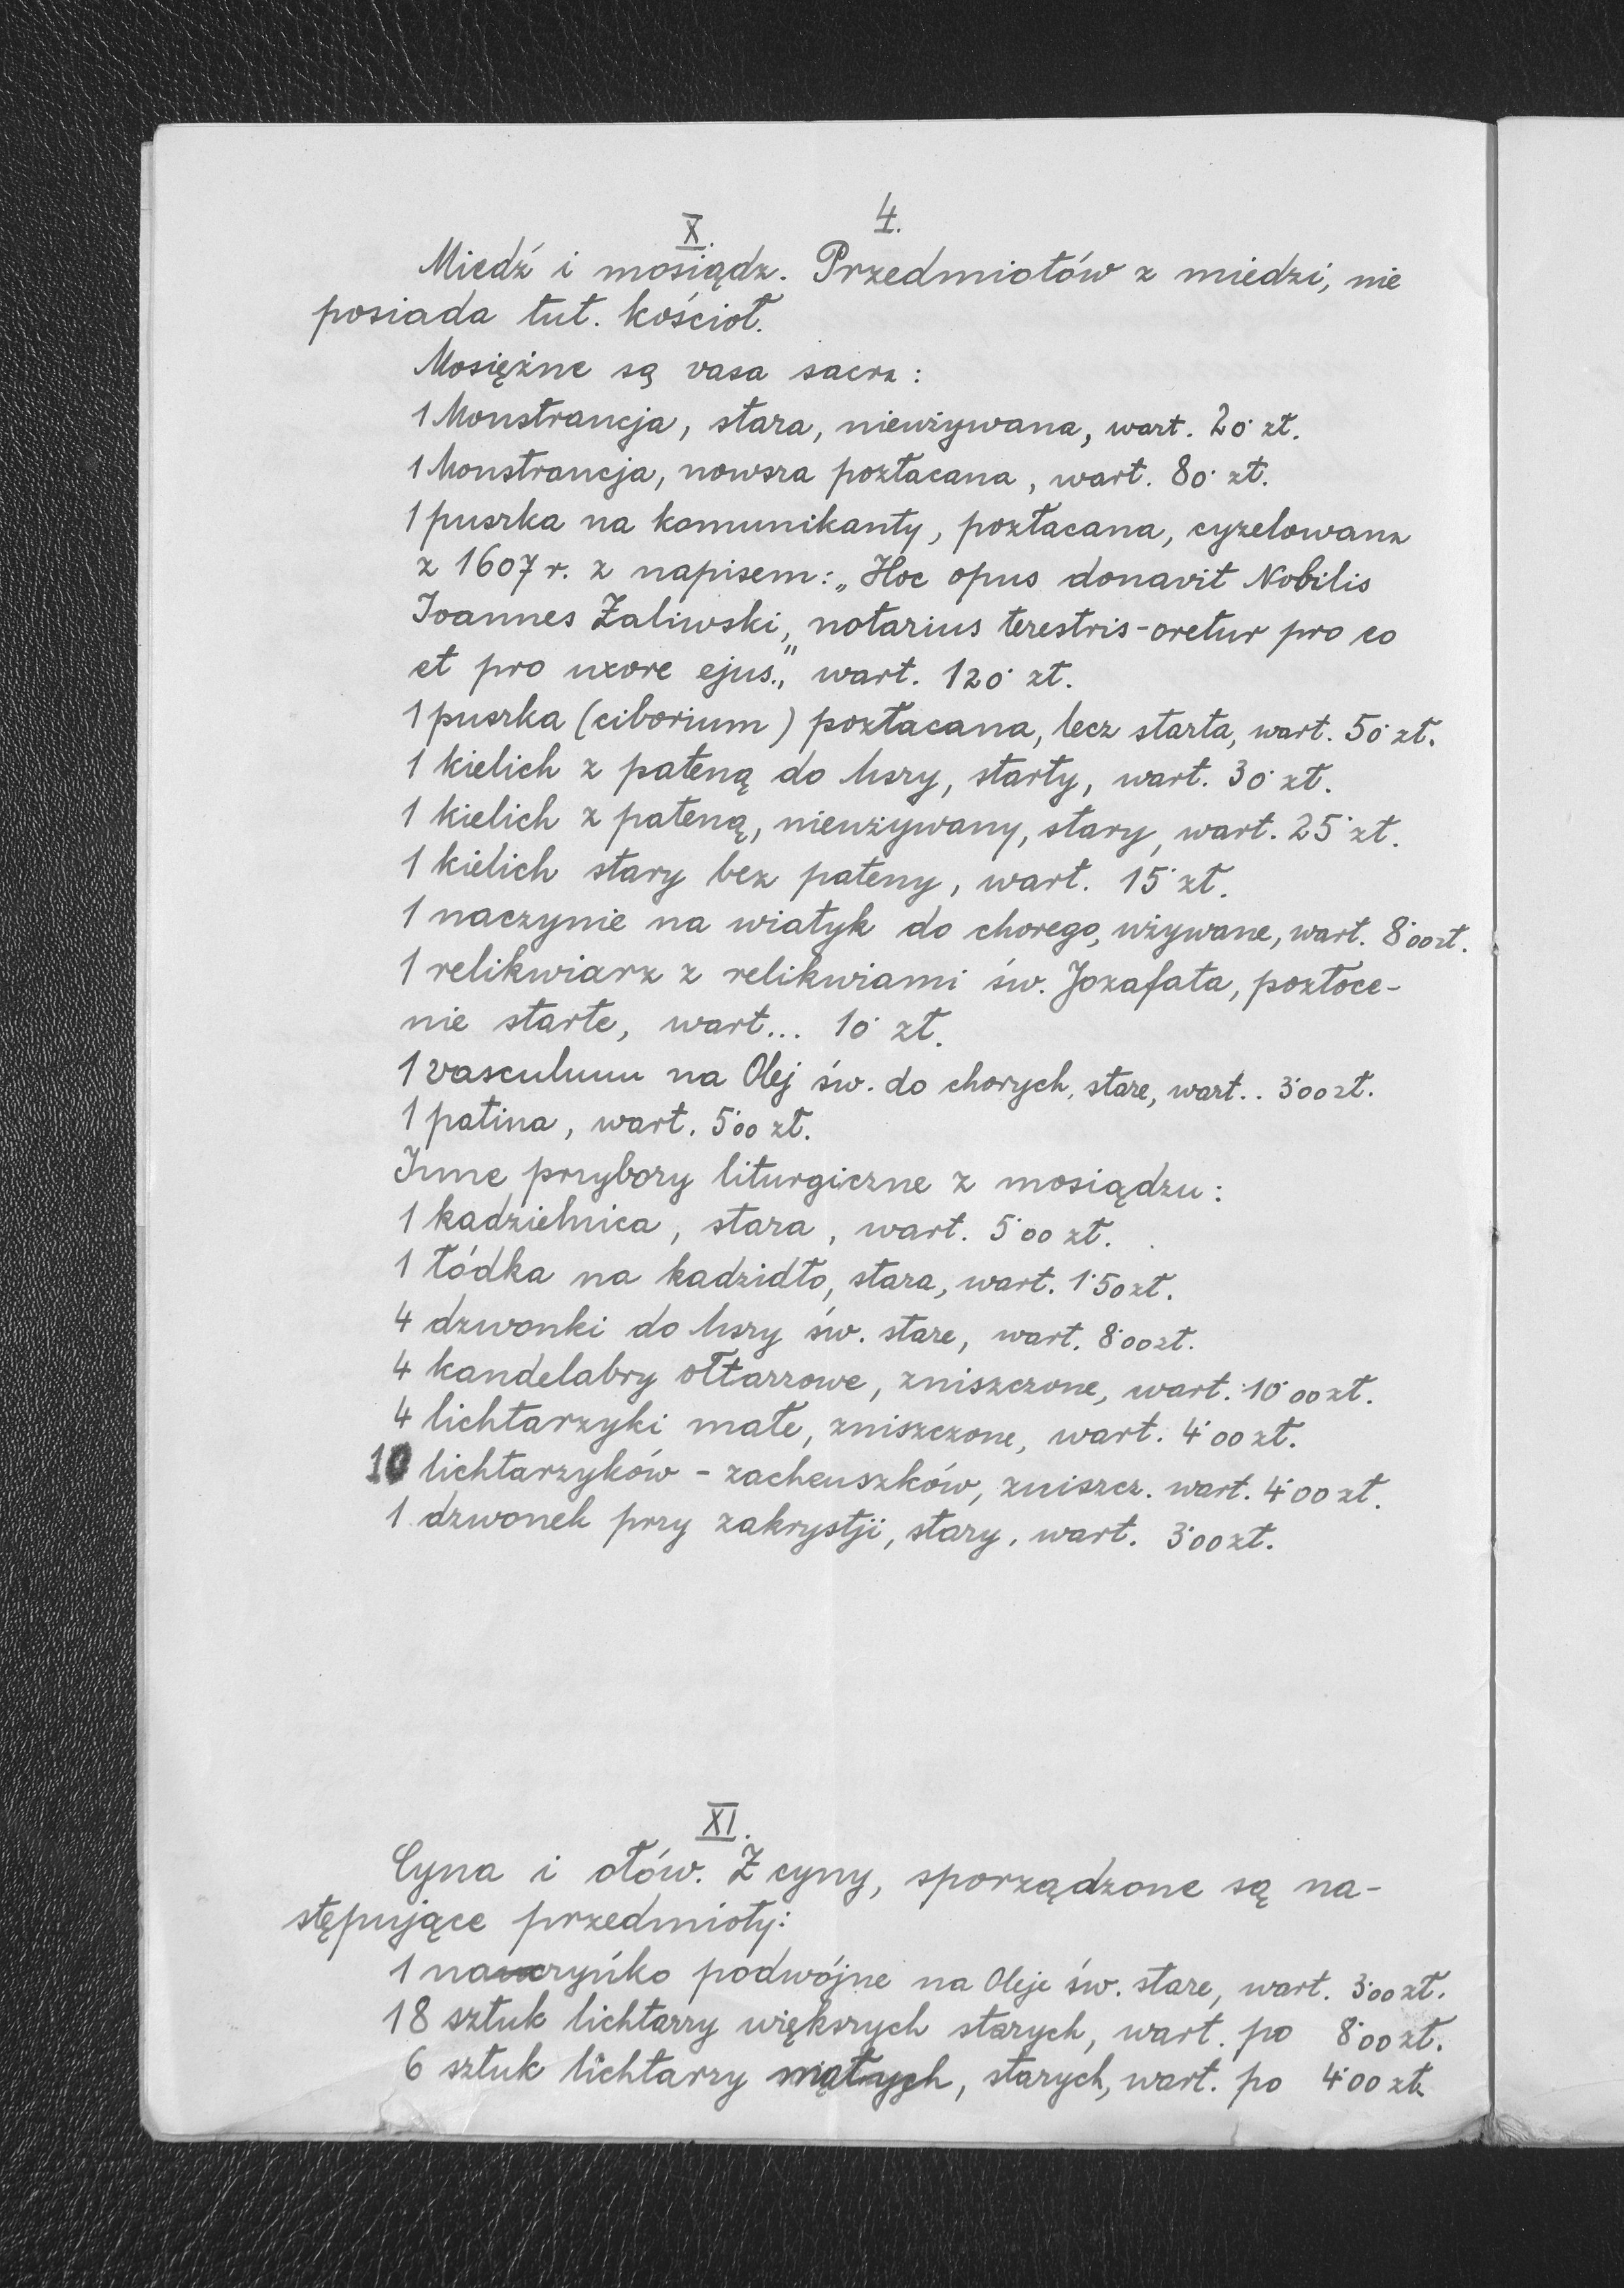 4.
X.
Miedź i mosiądz. Przedmiotów z miedzi, nie
posiada tut. kościoł.
Mosiężne są vasa sacra:
1 Monstrancja, stara, nieużywana, wart. 20˙ zł.
1 Monstrancja, nowsza pozłacana, wart. 80˙ zł.
1 puszka na komunikanty, pozłacana, cyzelowana
z 1607 r. z napisem: „Hoc opus donavit Nobilis
Joannes Zaliwski„ notarius terestris-oretur pro eo
et pro uxore ejus.„ wart. 120˙ zł.
1 puszka (ciborium) pozłacana, lecz starta, wart. 50˙ zł.
1 kielich z pateną do Mszy, starty, wart. 30˙ zł.
1 kielich z pateną, nieużywany, stary, wart. 25˙ zł.
1 kielich stary bez pateny, wart. 15˙ zł.
1 naczynie na wiatyk do chorego, używane, wart. 8˙00 zł.
1 relikwiarz z relikwiami św. Jozafata, pozłoce-
nie starte, wart... 10˙ zł.
1 vasculum na Olej św. do chorych, stare, wart.. 3˙00 zł.
1 patina, wart. 5˙00 zł.
Inne przybory liturgiczne z mosiądzu:
1 kadzielnica, stara, wart. 5˙00 zł.
1 łódka na kadzidło, stara, wart. 1˙50 zł.
4 dzwonki do Mszy św. stare, wart. 8˙00 zł.
4 kandelabry ołtarzowe, zniszczone, wart. 10˙00 zł.
4 lichtarzyki małe, zniszczone, wart. 4˙00 zł.
10 lichtarzyków - zacheuszków, zniszcz. wart. 4˙00 zł.
1 dzwonek przy zakrystji, stary, wart. 3˙00 zł.
XI.
Cyna i ołów. Z cyny, sporządzone są na-
stępujące przedmioty:
1 naczyńko podwójne na Oleje św. stare, wart. 3˙00 zł.
18 sztuk lichtarzy większych starych, wart. po 8˙00 zł.
6 sztuk lichtarzy małych, starych, wart. po 4˙00 zł.